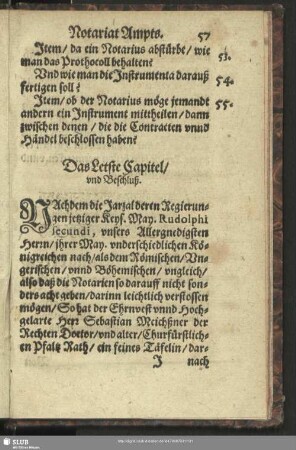 Notariat Ampts. 57
Item/ da ein Notarius abstürbe/ wie 53.
man das Prothocoll behalten?
Vnd wie man die Instrumenta darauß 54.
fertigen soll?
Item/ ob der Notarius möge jemandt 55.
andern ein Instrument mittheilen/ dann
zwischen denen/ die die Contracten vnnd
Händel beschlossen haben?
Das Letste Capitel/
vnd Beschluß.
NAchdem die Jarzal deren Regierun-
gen jetziger Keys. May. Rudolphi
secundi, vnsers Allergnedigsten
Herrn/ jhrer May. vnderschiedlichen Kö-
nigreichen nach/ als dem Römischen/ Vn-
gerischen/ vnnd Böhemischen/ vngleich/
also daß die Notarien so darauff nicht son-
ders acht geben/ darinn leichtlich verstossen
mögen/ So hat der Ehrnvest vnnd Hoch-
gelarte Herr Sebastian Meichßner der
Rechten Doctor/ vnd alter/ Churfürstlich-
en Pfaltz Rath/ ein feines Täfelin/ dar-
J nach
SLUB